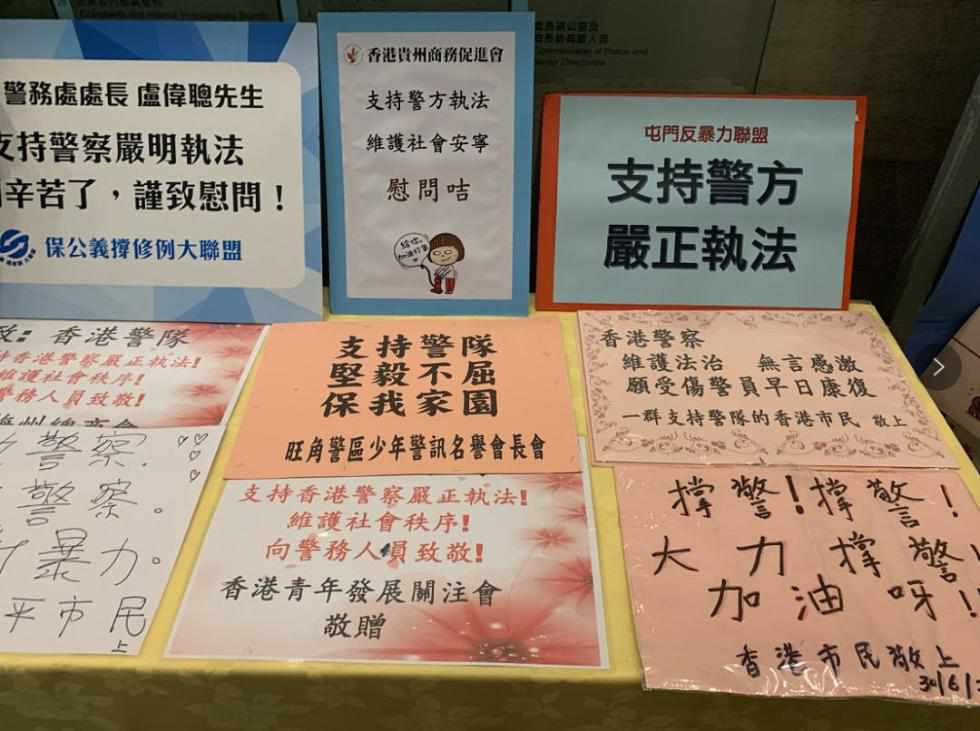 警務處處長 盧偉聰先生
支持警察嚴明執法
辛苦了，謹致慰問！
保公義撐修例大聯盟
香港貴州商務促進會
支持警方執法
維護社會安寧
慰問咭
給你
加油打氣
屯門反暴力聯盟
支持警方
嚴正執法
致: 香港警隊
持香港警察嚴正執法!
維護社會秩序!
警務人員致敬!
支持警隊
堅毅不屈
保我家園
旺角警區少年警訊名譽會長會
香港警察
維護法治 無言感激
願受傷警員早日康復
一群支持警隊的香港市民 敬上
警察.
警察。
暴力。
平市民
上
支持香港警察嚴正執法!
維護社會秩序!
向警務人員致敬!
香港青年發展關注會
敬贈
撐警!撐警!
大力撐警
加油呀!
香港市民敬上
30/6/